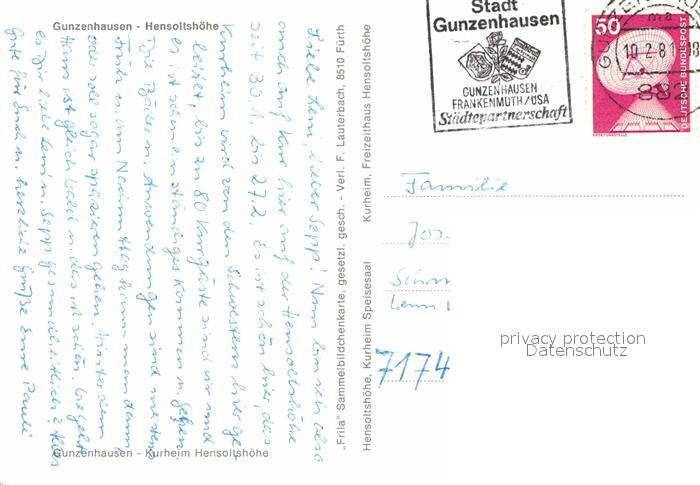 Gunzenhausen - Hensoltshöhe
Liebe Leni, lieber Sepp! Nun bin ich also
auch auf Kur hier auf der Hensoltshöhe
seit 30.1. bis 27.2. Es ist schön hier, das
Kurheim wird von den Schwestern hier ge-
leitet, bis zu 80 Kurgäste sind wir und
es ist schon ein ständiges Kommen u. Gehen.
Die Bäder u. Anwendungen sind meistens
früh u. am Nachmittag kann man dann
oder soll sogar spazieren gehen. Hinter dem
Haus ist gleich Wald u. das ist schön. Wie geht
es Dir liebe Leni u. Sepp gesundheitlich? Alles
Gute für Euch u. herzliche Grüße Eure Pauli
Gunzenhausen - Kurheim Hensoltshöhe
„Frila" Sammelbildchenkarte, gesetzl. gesch. - Verl. F. Lauterbach, 8510 Fürth
Hensoltshöhe, Kurheim Speisesaal
Kurheim, Freizeithaus Hensoltshöhe
Stadt
Gunzenhausen
GUNZENHAUSEN
FRANKENMUTH/USA
Städtepartnerschaft
50
DEUTSCHE BUNDESPOST
ERDEFUNKSTELLE
ma
10.2.8
88
Familie
Jos.
Leni
7174
privacy protection
Datenschutz